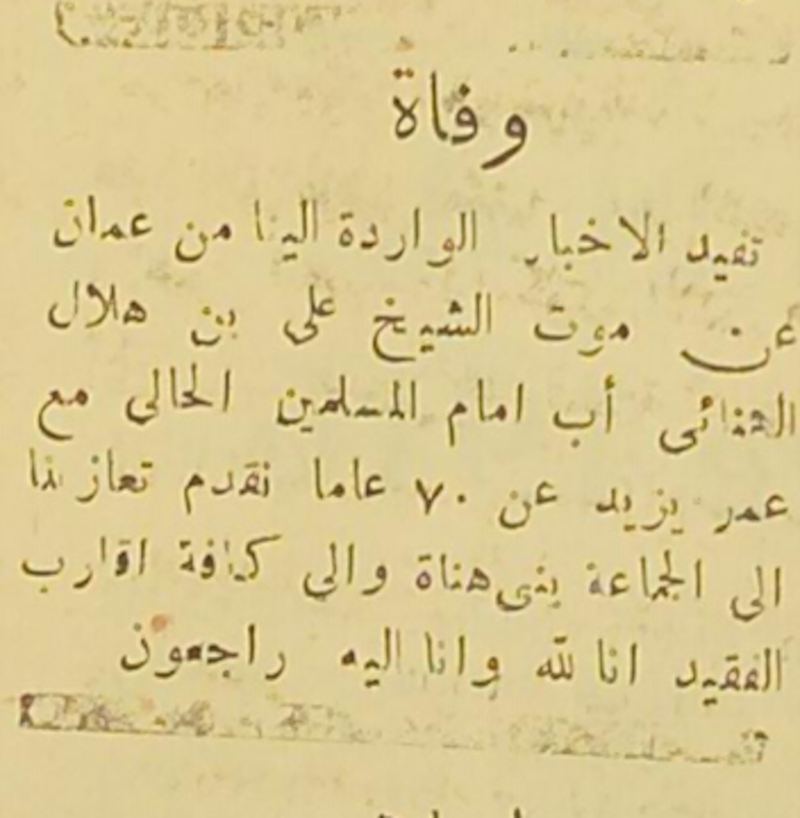 وفاة
تفيد الاخبار الواردة الينا من عمان
عن موت الشيخ على بن هلال
الهنائى أب امام المسلمين الحالى مع
عمر يزيد عن ٧٠ عاما نقدم تعازينا
الى الجماعة بنى هناة والى كافة اقارب
الفقيد انا لله وانا اليه راجعون